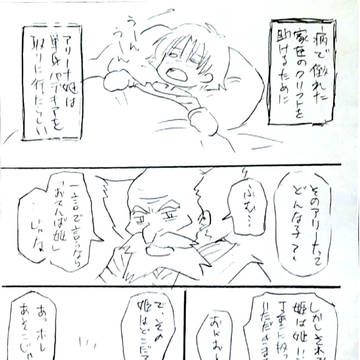 病で倒れた
家臣のクリフトを
助けるために
うーん
うーん
アリーナ姫は
単身パデキアを
取りに行たてい
そのアリーナって
どんな子？
ふむ…
一言で言うなら
「おてんば姫」
じゃな
しかしそれ
姫は姫!!
丁重に扱
いただき
おんお
で、その
姫はどこだ
あっ
あそこじゃ